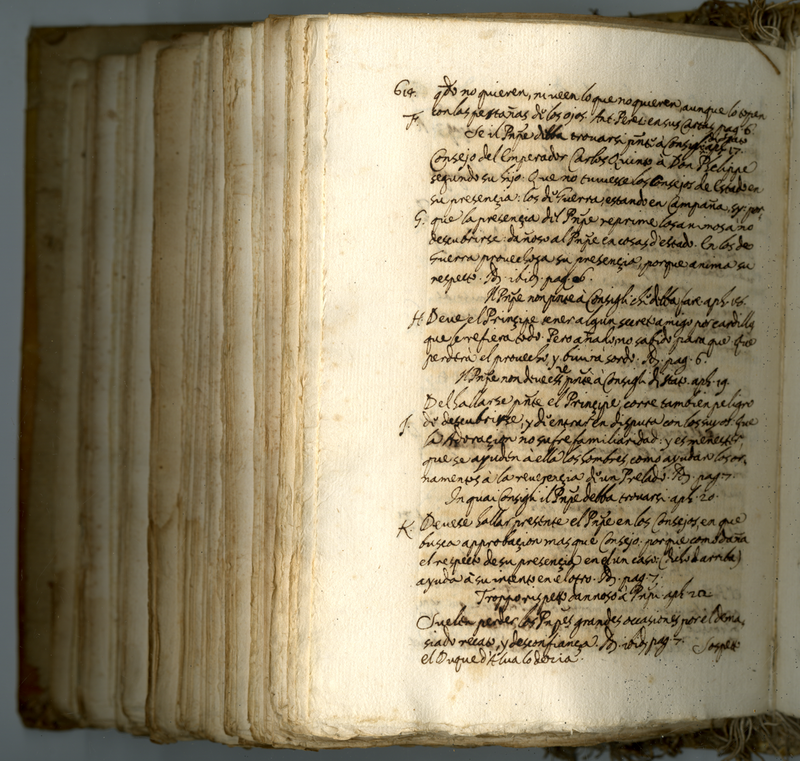 614. qdo no quieren, ni veen lo que no quieren, aunque lo topen
con las pestañas de los ojos. Ant. Perez en sus Cartas pag. 6.
F. Se il Prñpe debba trovarsi pñte à Consigli aph. 17.
Consejo del Emperador Carlos Quinto à Don Phelippe
segundo su hijo. Que no tuviesse los Consejos de Estado en
su presençia: los de Guerra, estando en Campaña, sy. por
G. que la presençia del Prñpe reprime los animos à no
descubrirse. dañoso al Prñpe en cosas d'estado. En los de
Guerra provechosa su presençia, porque anima su
respecto. Id. ibid. pag. 6.
Il Prñpe non pñte à Consigli che debba fare. aph. 18.
H. Deve el Prinçipe tener algun secreto amigo por cardillo
que le refiera todo. Pero añado, no sabido para que que
perdera el provecho, y burra sordo. Id. pag. 6.
Il Prñpe non deve esse pñte à Consigli di Stato. aph. 19.
Del hallarse pñte el Prinçipe, corre tambien peligro
J. de descubrirse, y de entrar en disputa con los suyos. Que
la Adoraçion no sufre familiaridad: y es menester
que se ayuden a ella los hombres como ayudan los or-
namentos à la reverençia de un Prelado. Id. pag. 7.
In quai Consigli il Prñpe debba trovarsi. aph. 20.
K. Devese hallar presente el Prñpe en los Consejos, en que
busca approbaçion mas que Consejo. porque como daña
el respecto de su presençia en el un caso (dicho d'arriba)
ayuda à su intento en el otro. Id. pag. 7.
Troppo rispetto dannoso à Prñpi. aph. 21.
Suelen perder los Prñpes grandes occasiones por el dema-
siado recato, y desconfiança. Id. ibid. pag. 7.
el Duque d'Alva lo dezia.
Sospett